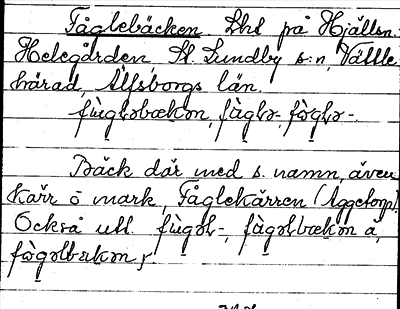 Fåglebäcken, Lhs på Hjälsn.
Helegården St. Lundby s:n, Vättle
härad, Älfsborgs län.
fùglɘbækɘn, fàglɘ-, fòglɘ-.
Bäck där med s. namn, även
Kärr o mark, Fåglekärren (Aggetorp).
Också utt. fùgɘl-, fàgɘlbækɘn å,
fògɘlbækɘn,